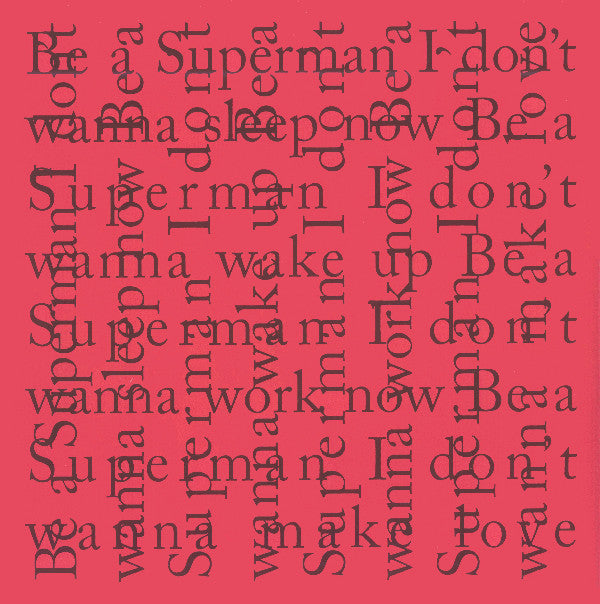 Be a Superman I don't
wanna sleep now Be a
Superman I don't
wanna wake up Be a
Superman I don't
wanna work now Be a
Superman I don't
wanna make love
Be a Superman I don't
wanna sleep now Be a
Superman I don't
wanna wake up Be a
Superman I don't
wanna work now Be a
Superman I don't
wanna make love